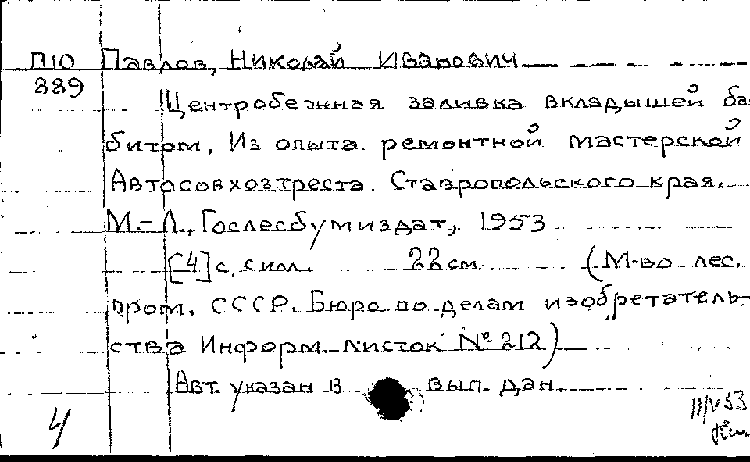 П10 Павлов, Николай Иванович
889
Центробежная заливка вкладышей ба
битом. Из опыта ремонтной мастерской
Автосовхозтреста Ставропольского края.
М.-Л., Гослесбумиздат, 1953
[4] с. с илл. 22 см (М-во лес.
пром. СССР. Бюро по делам изобретатель-
ства Информ. листок № 212)
Авт. указан в вып. дан.
4